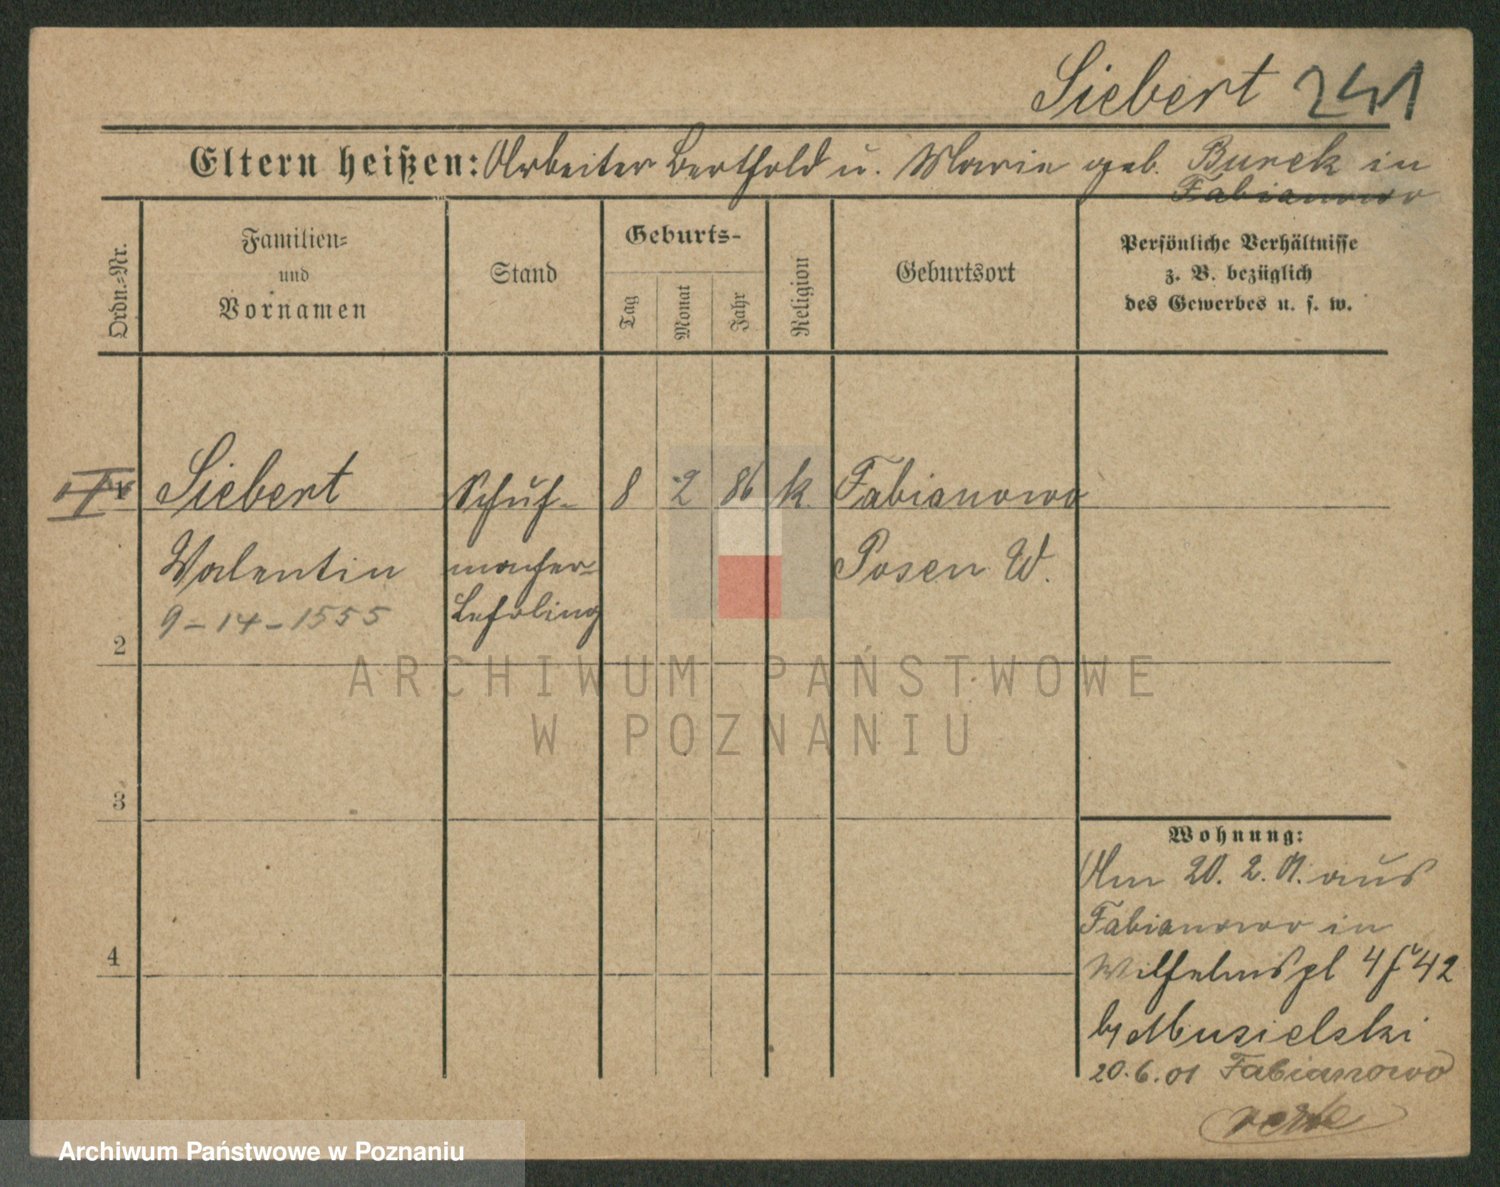 Siebert 241
Eltern heißen: Arbeiter Berthold u. Marie geb. Burek in
Fabianowo
Ordn.-Nr.
Familien-
und
Vornamen
Stand
Geburts-
Tag
Monat
Jahr
Religion
Geburtsort
Persönliche Verhältnisse
z. B. bezüglich
des Gewerbes u. s. w.
Siebert Schuh- 8 2 86 k. Fabianowo
Valentin macher- Posen W.
9-14-1555 Lehrling
2
3
4
Wohnung:
Am 20. 2. 01. aus
Fabianowo in
Wilhelmspl 4 42
by Musielski
20.6.01 Fabianowo
verte
ARCHIWUM PAŃSTWOWE
W POZNANIU
Archiwum Państwowe w Poznaniu